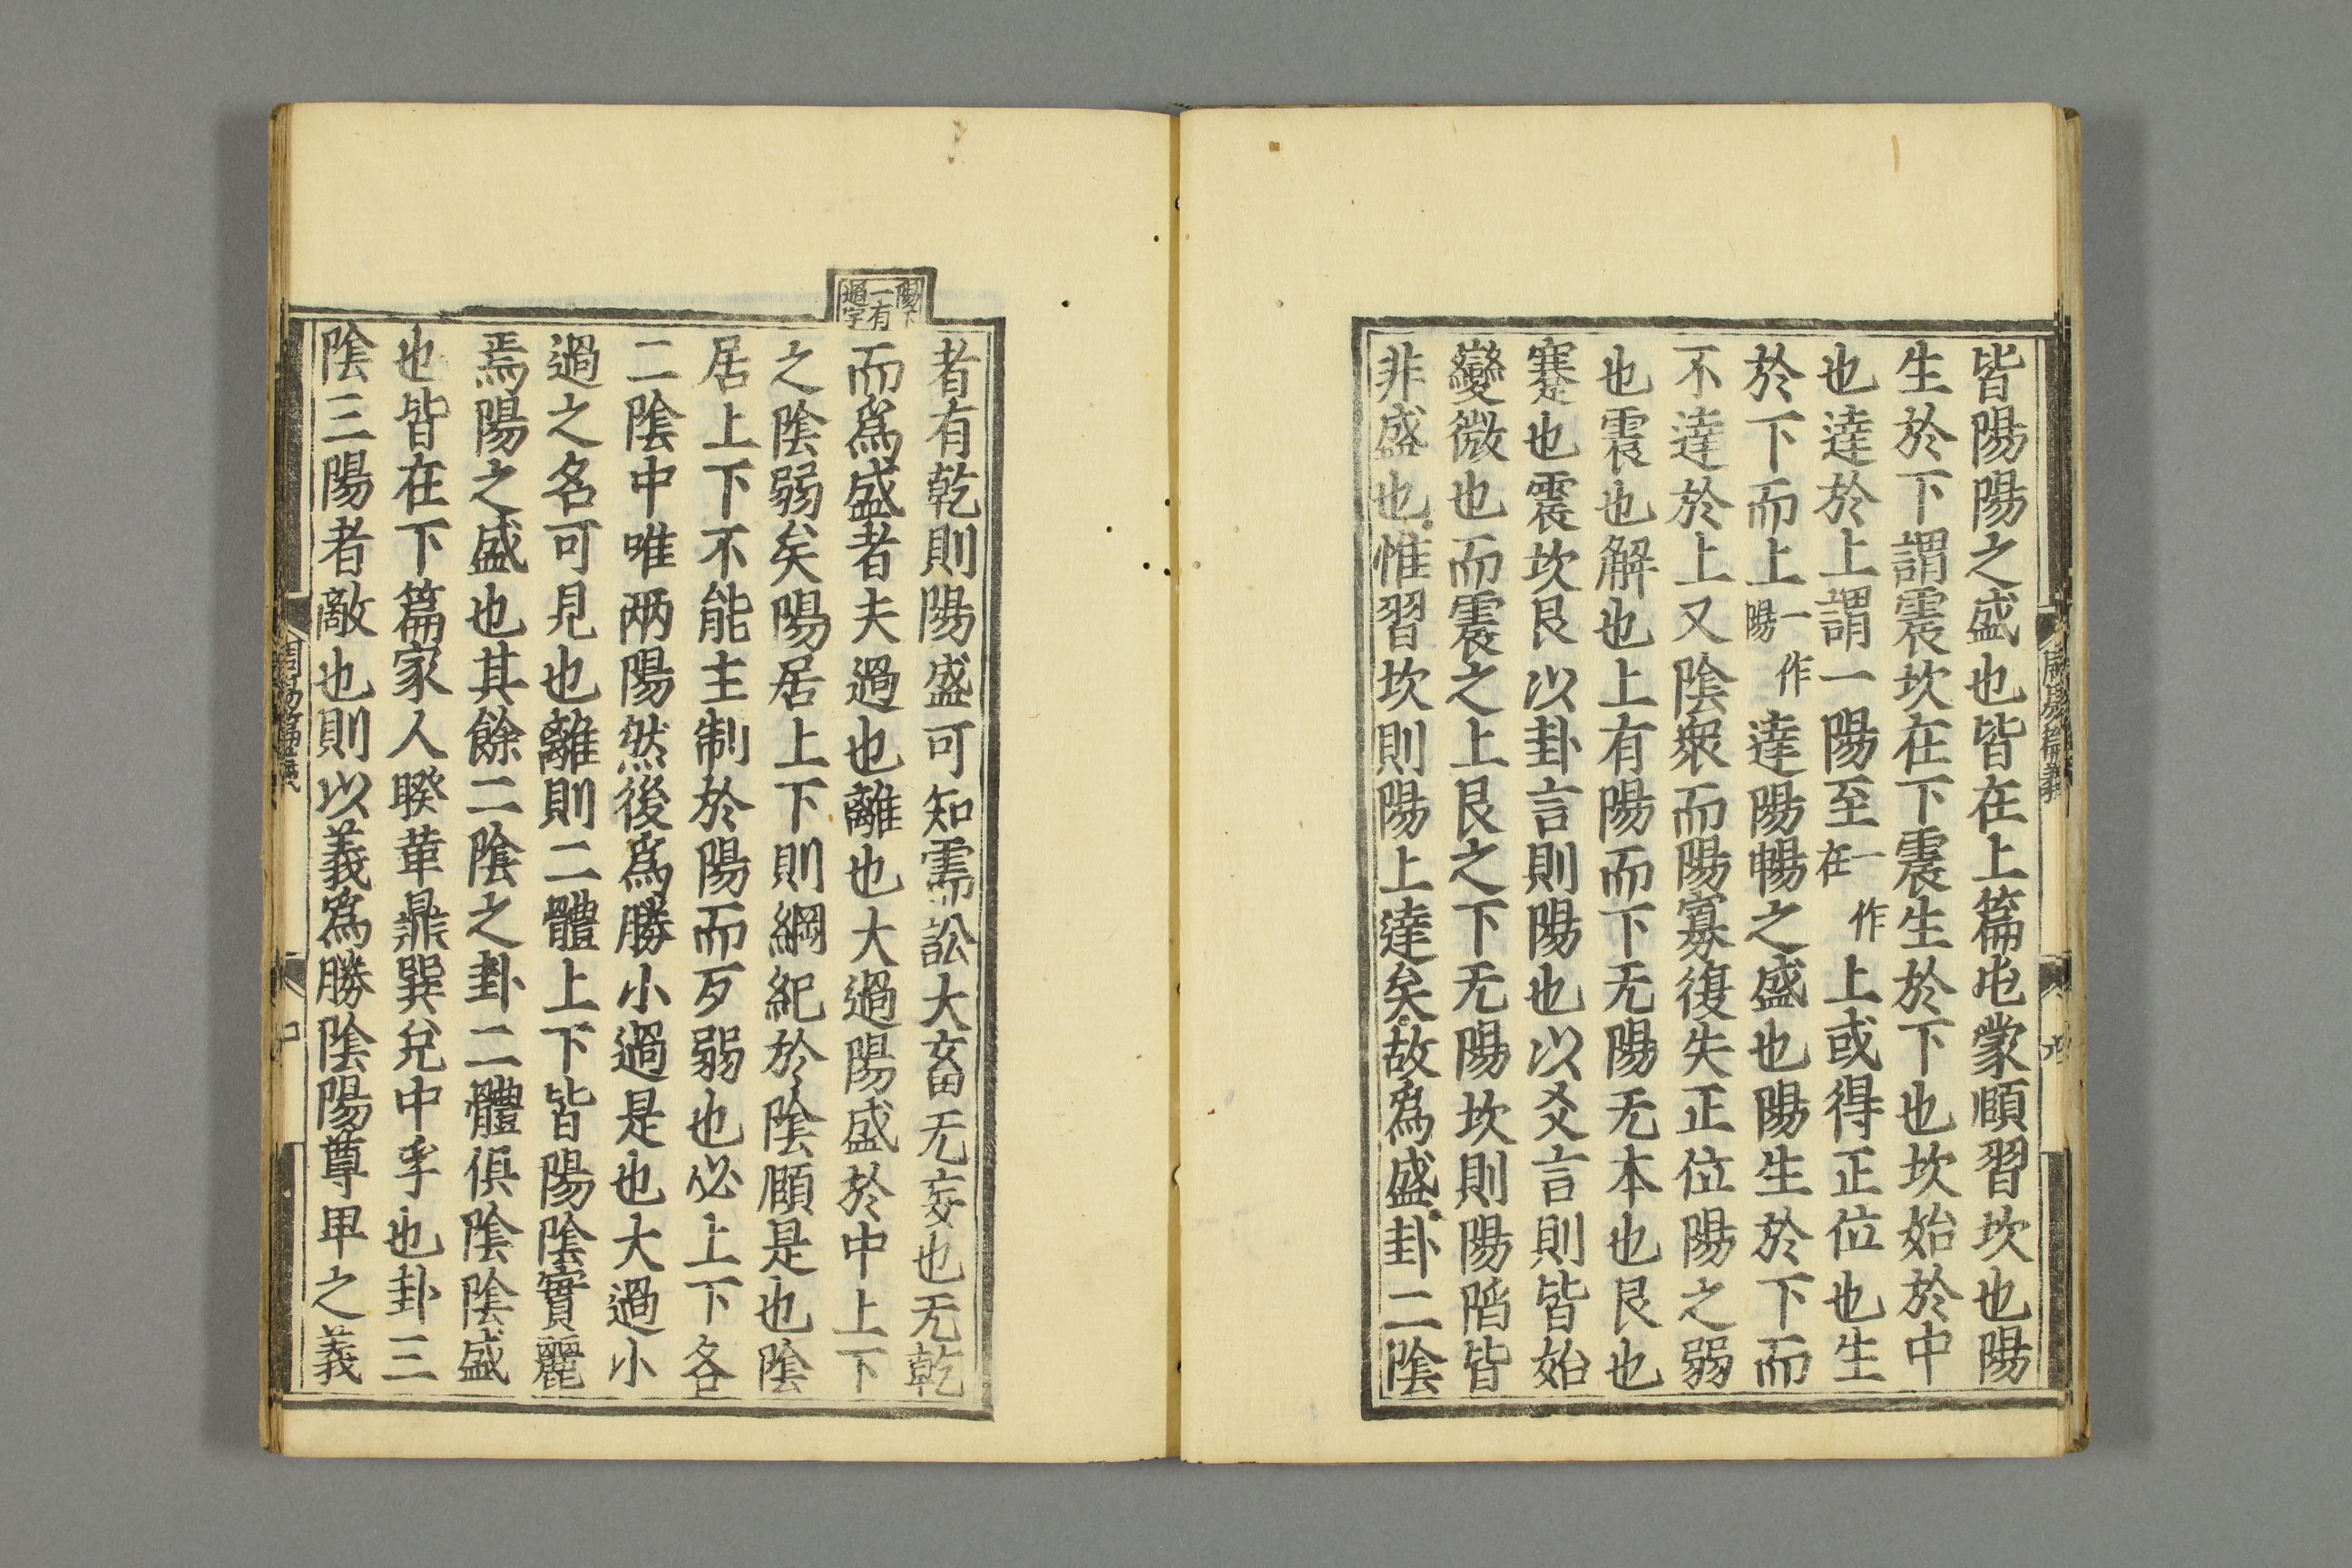 皆陽陽之盛也皆在上篇屯蒙頤習坎也陽
生於下謂震坎在下震生於下也坎始於中
也達於上謂一陽至一作在上或得正位也生
於下而上一作陽達陽暢之盛也陽生於下而
不達於上又陰衆而陽寡復失正位陽之弱
也震也解也上有陽而下无陽无本也艮也
蹇也震坎艮以卦言則陽也以爻言則皆始
變微也而震之上艮之下无陽坎則陽陷皆
非盛也惟習坎則陽上達矣故爲盛卦二陰
者有乾則陽盛可知需訟大畜无妄也无乾
陽下一有過字
而爲盛者夫過也離也大過陽盛於中上下
之陰弱矣陽居上下則綱紀於陰頤是也陰
居上下不能主制於陽而反弱也必上下各
二陰中唯兩陽然後爲勝小過是也大過小
過之名可見也離則二體上下皆陽陰實麗
焉陽之盛也其餘二陰之卦二體俱陰陰盛
也皆在下篇家人睽革鼎巽兌中孚也卦三
陰三陽者敵也則以義爲勝陰陽尊卑之義